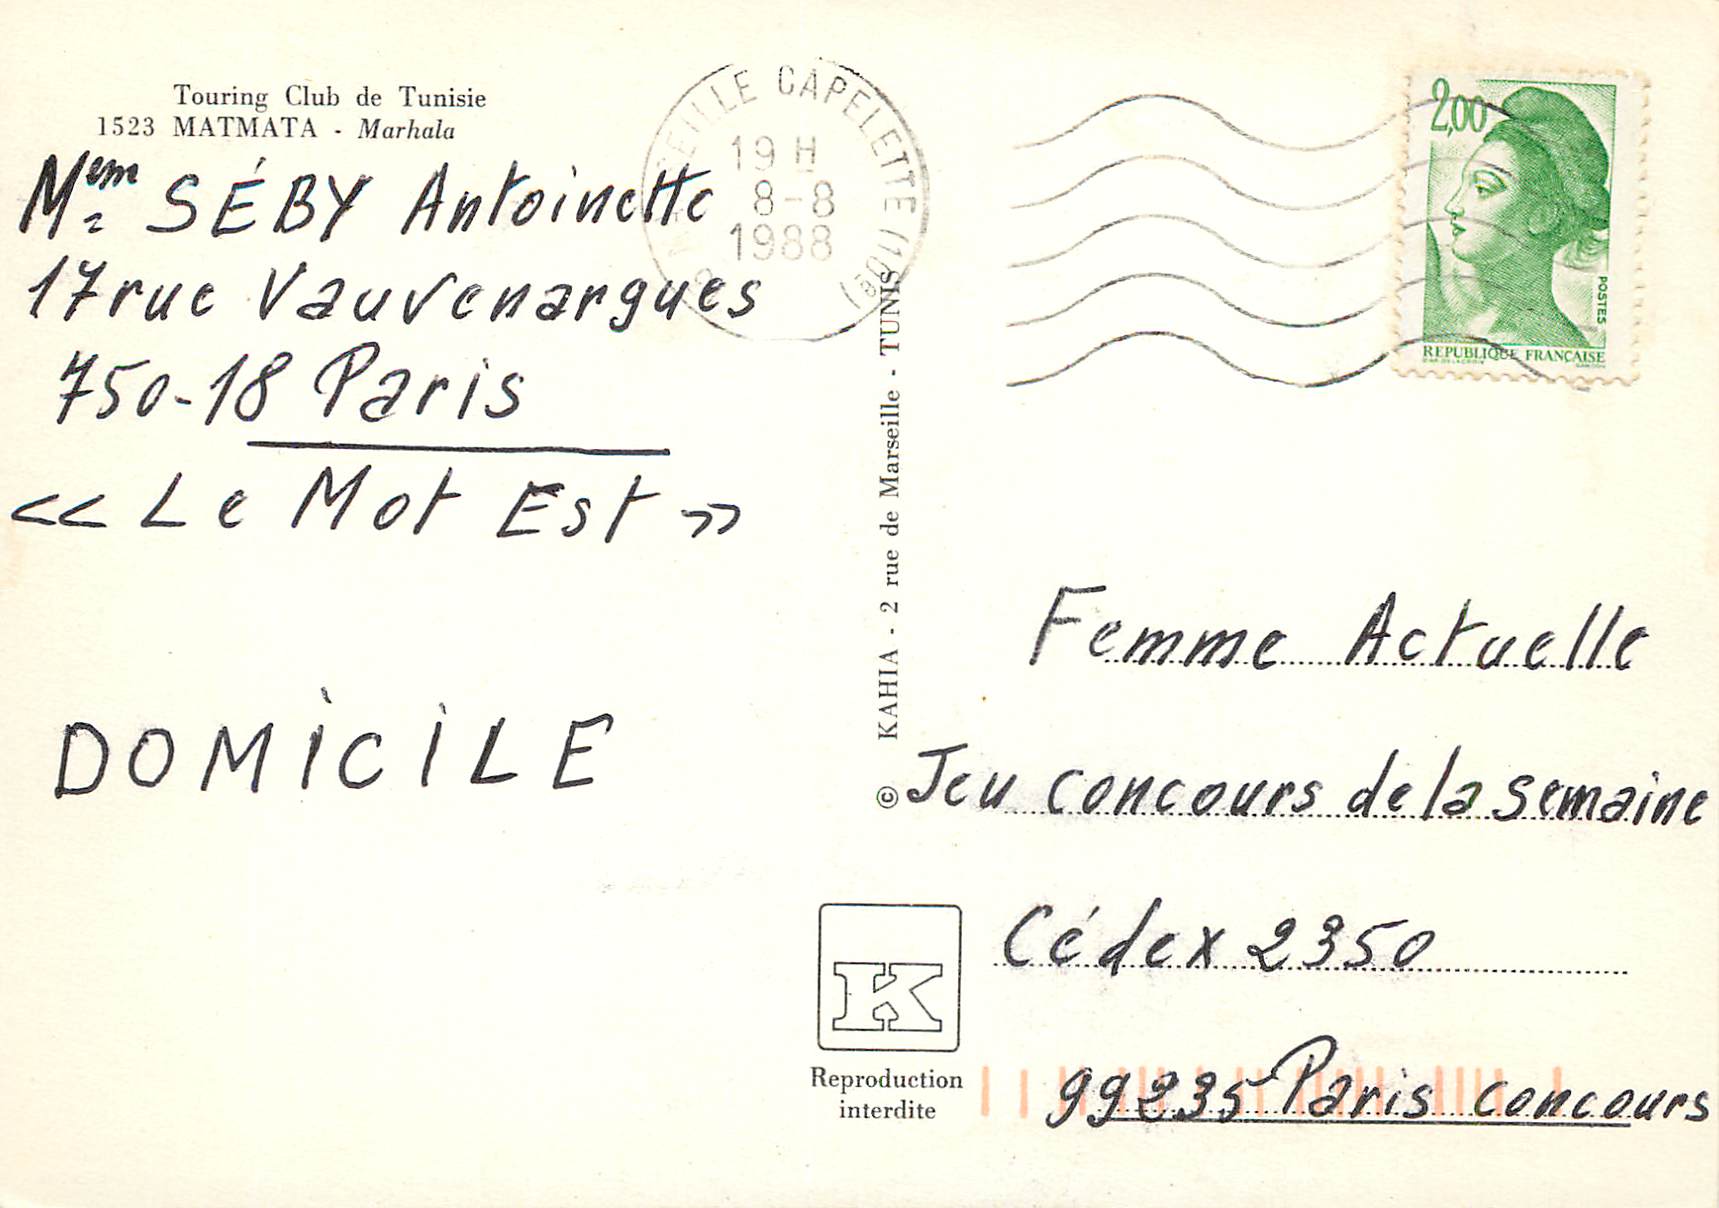 Touring Club de Tunisie
1523 MATMATA - Marhala
Mᵉᵐ SÉBY Antoinette
17 rue Vauvenargues
750-18 Paris
<< Le Mot Est >>
DOMICILE
SEILLE CAPELETTE
19 H
8-8
1988
2,00
POSTES
REPUBLIQUE FRANÇAISE
© KAHIA - 2 rue de Marseille - TUNIS
Femme Actuelle
Jeu concours de la semaine
Cédex 2350
99235 Paris concours
K
Reproduction
interdite